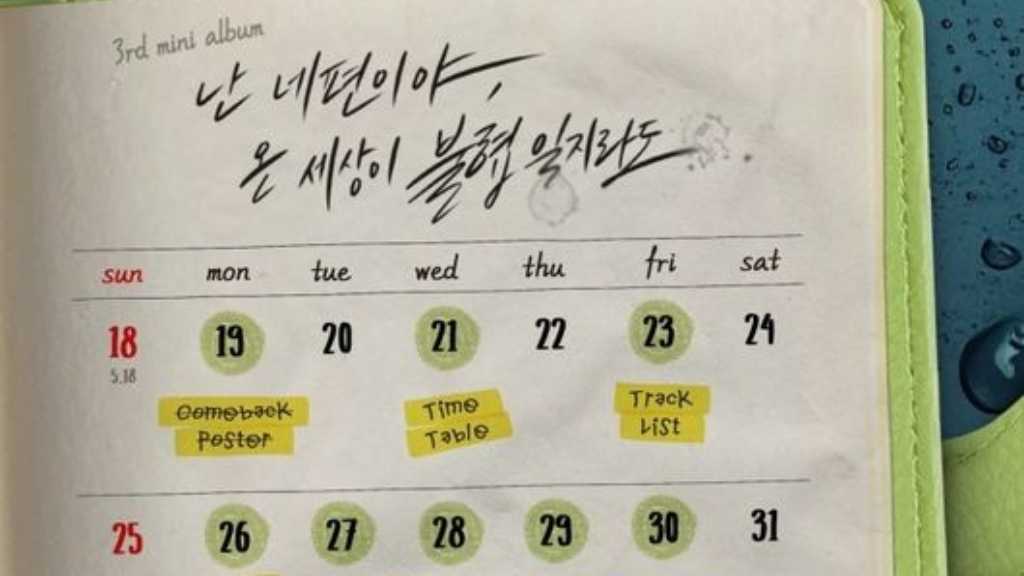 3rd mini album
난 네편이야,
온 세상이 불협일지라도
sun mon tue wed thu fri sat
18 19 20 21 22 23 24
5.18
Comeback Time Track
Poster Table List
25 26 27 28 29 30 31